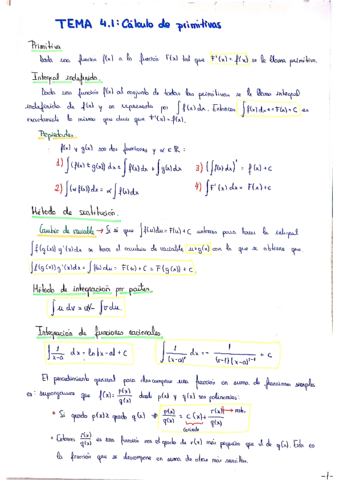 TEMA 4.1: Cálculo de primitivas
Primitiva
Dada una función f(x) a la función F(x) tal que F'(x) = f(x) se le llama primitiva.
Integral indefinida
Dada una función f(x) al conjunto de todas las primitivas se le llama integral
indefinida de f(x) y se representa por ∫f(x)dx. Entonces ∫f(x)dx = F(x) + C es
exactamente lo mismo que decir que F'(x) = f(x).
Propiedades:
f(x) y g(x) son dos funciones y α ∈ ℝ:
1) ∫(f(x) ± g(x)) dx = ∫f(x)dx ± ∫g(x)dx 3) (∫f(x)dx)' = f(x) + C
2) ∫(αf(x))dx = α∫f(x)dx 4) ∫F'(x)dx = F(x) + C
Método de sustitución.
Cambio de variable → Si sé que ∫f(u)du = F(u) + C entonces para hacer la integral
∫f(g(x))g'(x)dx se hace el cambio de variable u = g(x) con lo que se obtiene que
∫f(g(x))g'(x)dx = ∫f(u)du = F(u) + C = F(g(x)) + C.
Método de integración por partes.
∫u dv = uv - ∫v du.
Integración de funciones racionales
∫ 1/(x-a) dx = ln|x-a| + C ∫ 1/(x-a)^r dx = - 1/((r-1)(x-a)^(r-1)) + C
El procedimiento general para descomponer una fracción en suma de fracciones simples
es: supongamos que f(x) = p(x)/q(x) donde p(x) y q(x) son polinomios:
• Si grado p(x) ≥ grado q(x) ⇒ p(x)/q(x) = C(x) + r(x)/q(x) → resto.
cociente
• Entonces r(x)/q(x) es una función con el grado de r(x) más pequeño que el de q(x). Esta es
la fracción que se descompone en suma de otras más sencillas.
-1-